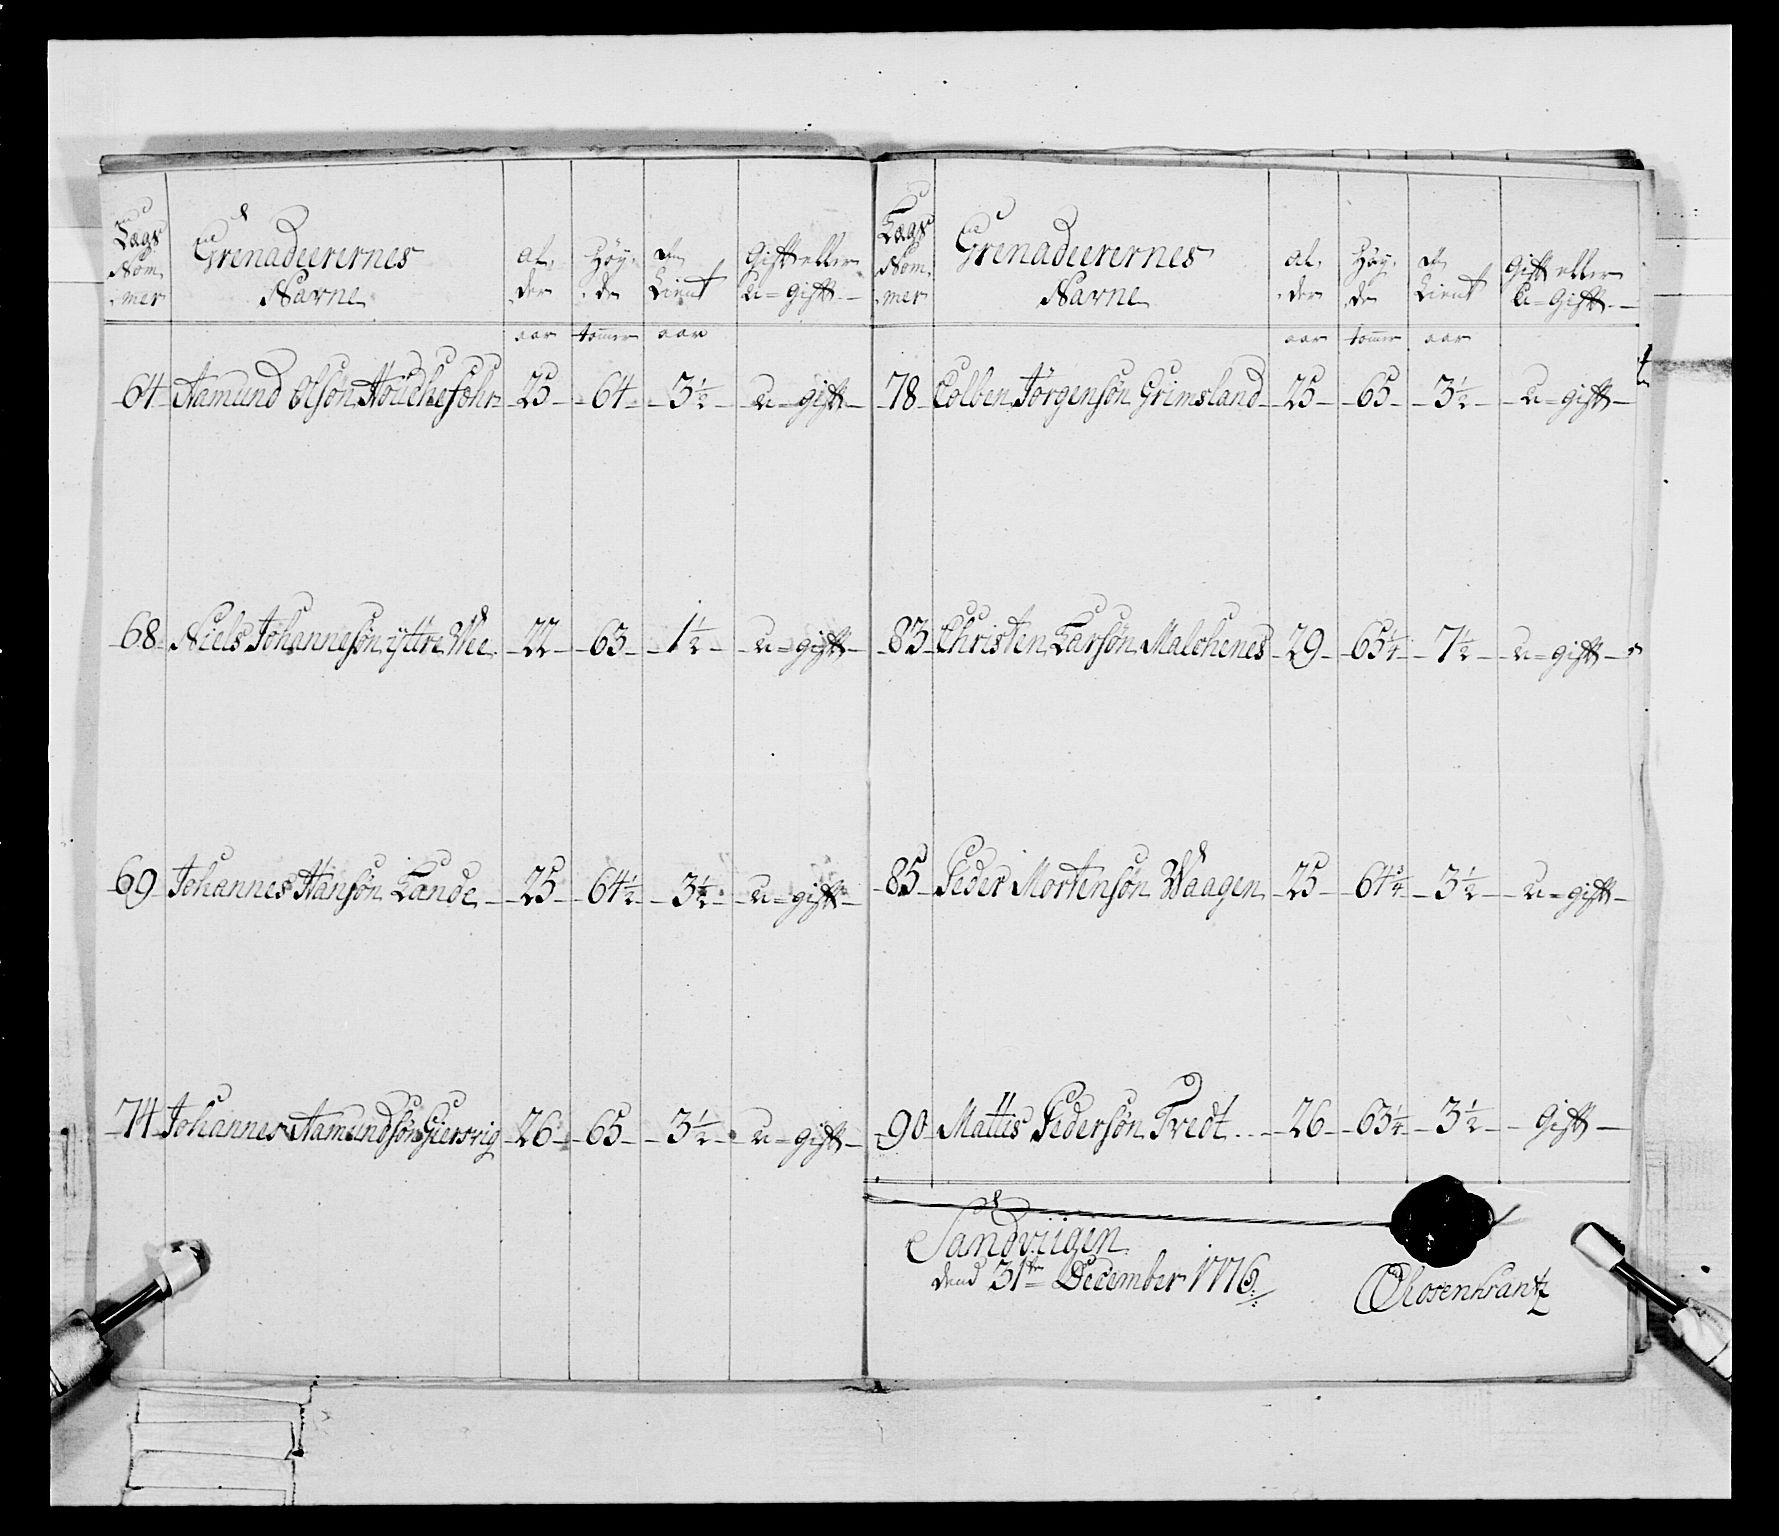 Lægs Nom, mer | Grenadeerernes Navne | al, der | Høy, de | Tient | Gift eller U=gift
aar | tommer | aar
64 Aamund Olsøn 25 64 3½ u=gift
68 Niels Johannesøn ÿttre Wee 22 63 1½ u=gift
69 Johannes Hansøn Lande 25 64½ 3½ u=gift
74 Johannes Aamundsøn Giersvig 26 65 3½ u=gift
Lægs Nom, mer | Grenadeerernes Navne | al, der | Høy, de | Tient | Gift eller U=Gift
aar | tommer | aar
78 Colben Jørgensøn Grimsland 25 65 3½ u=gift
83 Christen Larsøn Malchenes 29 65¼ 7½ u=gift
85 Peder Mortensøn Waagen 25 64¾ 3½ u=gift
90 Mattis Pedersøn Tvedt 26 63¼ 3½ Gift
Sandviigen
dend 31te December 1776
Rosenkrantz